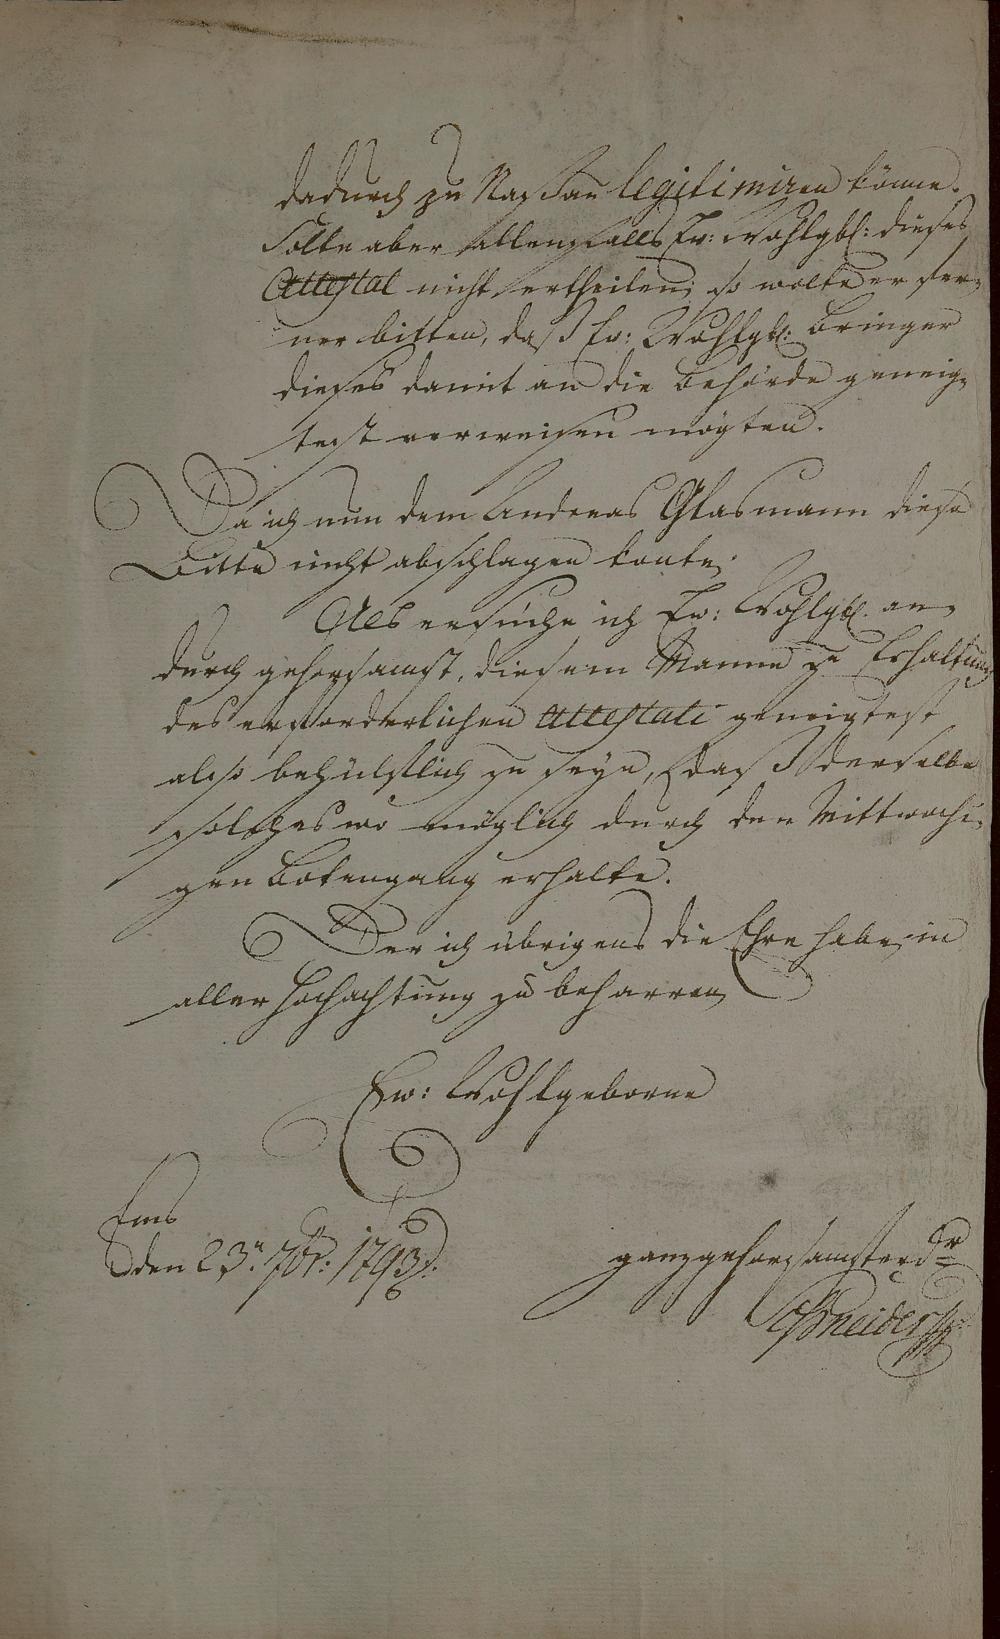 dadurch zu Naßau legitimiren könne.
Solte aber allenfalls Ew: Wohlgb: dieses
Attestat nicht ertheilen, so wolte er fer„
ner bitten, daß Ew: Wohlgb: Bringer
dieses damit an die Behörde geneig„
test verweisen mögten.
Da ich nun dem Andreas Glasmann diese
Bitte nicht abschlagen konte;
Als ersuche ich Ew: Wohlgb. an„
durch gehorsamst, diesem Manne zu Erhaltung
des erforderlichen Attestati geneigtest
also behülflich zu seyn, daß derselbe
solches wo möglich durch den Mittwochi„
gen Botengang erhalte.
Der ich übrigens die Ehre habe, in
aller Hochachtung zu beharren,
Ew: Wohlgeborne
Ems
den 23n. 7br: 1793.
ganz gehorsamster Dr
Schneider